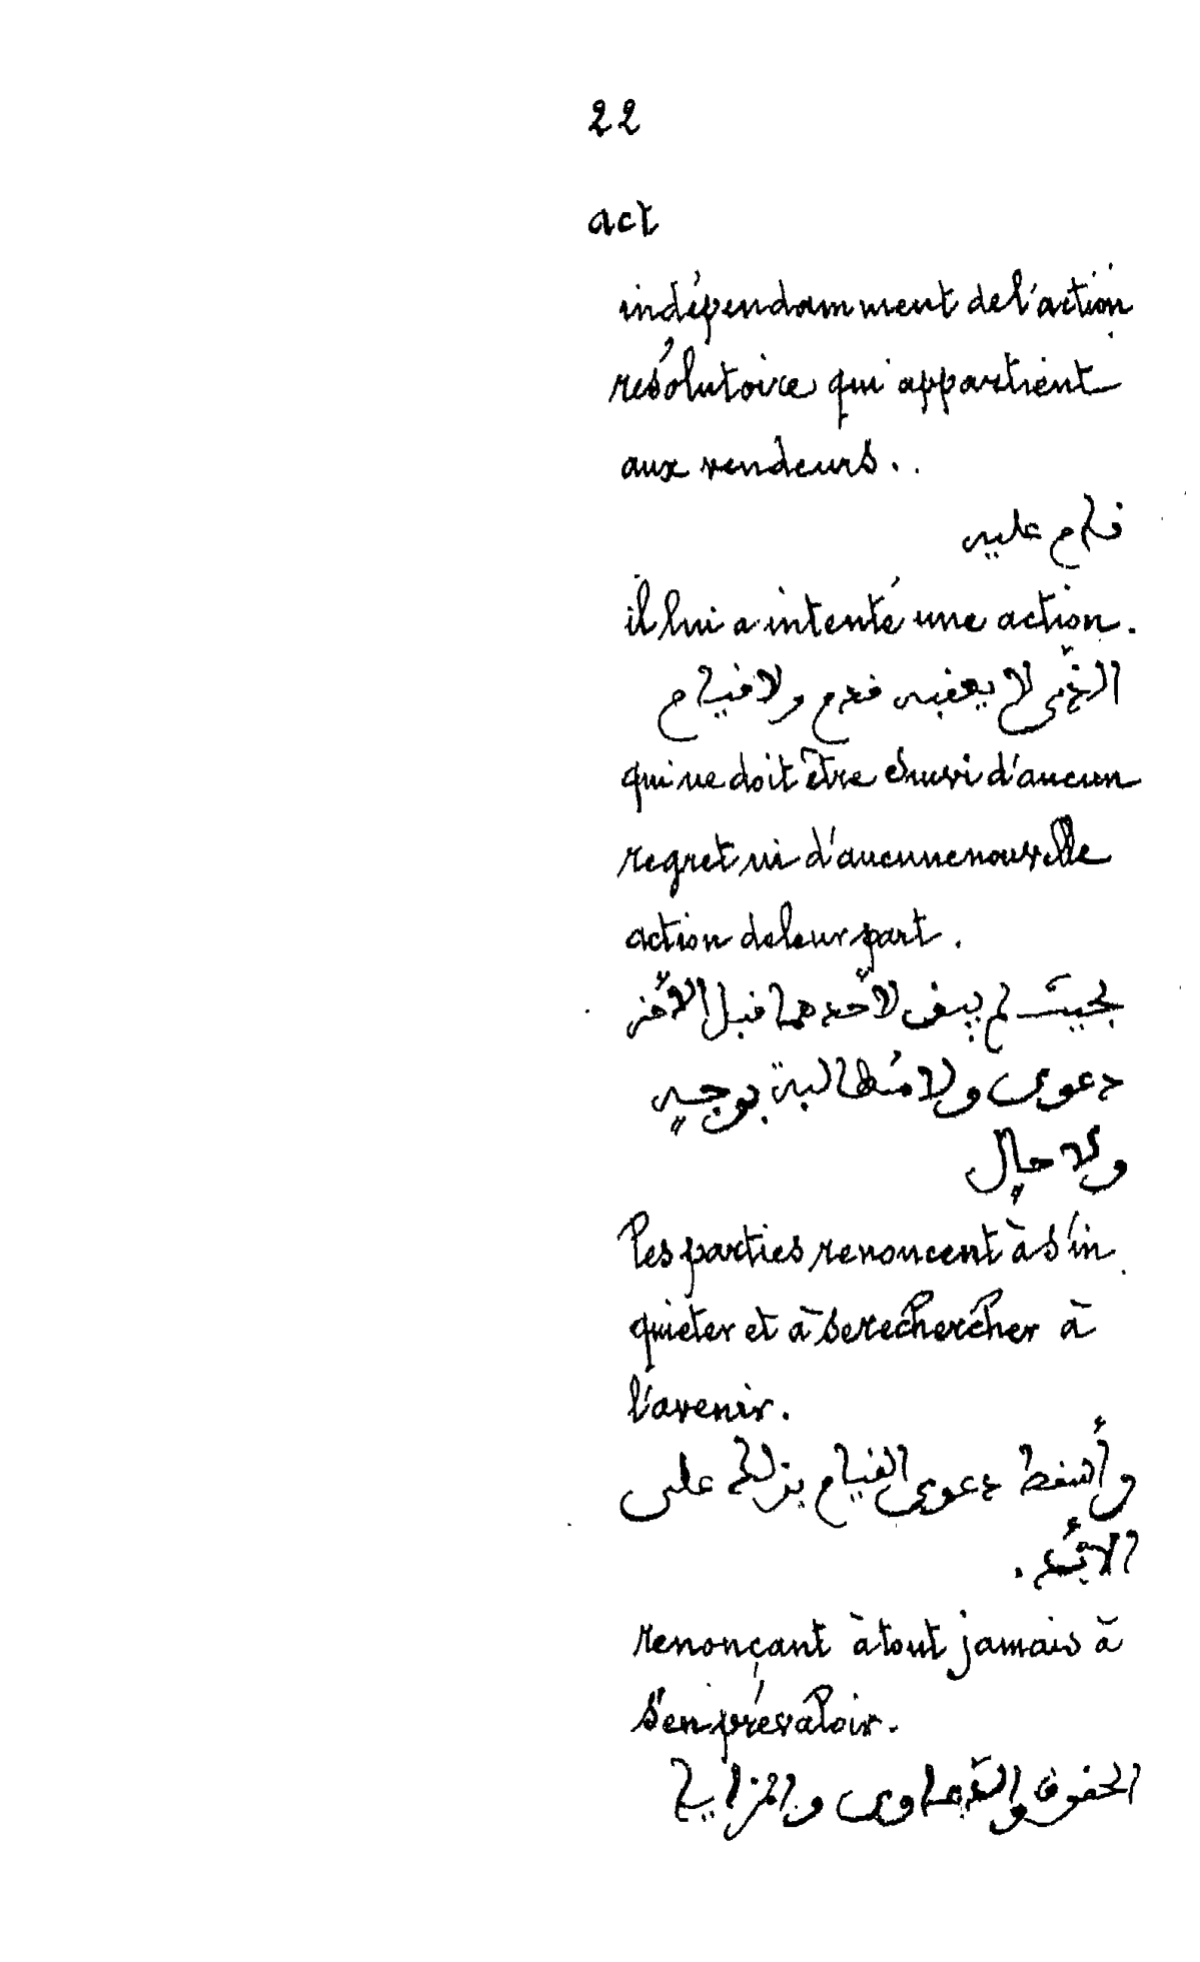 22
act
indépendamment de l'action
résolutoire qui appartient
aux vendeurs..
قام عليه
il lui a intenté une action.
الذي لا يعقبه ندم ولا قيام
qui ne doit être suivi d'aucun
regret ni d'aucune nouvelle
action de leur part.
بحيث لم يبق لأحدهما قبل الآخر
دعوى ولا مطالبة بوجه
ولا حال
les parties renoncent à s'in
quiéter et à se rechercher à
l'avenir.
وأسقط دعوى القيام بذلك على
الأبد.
renonçant à tout jamais à
s'en prévaloir.
الحقوق والدعاوى والمزايا